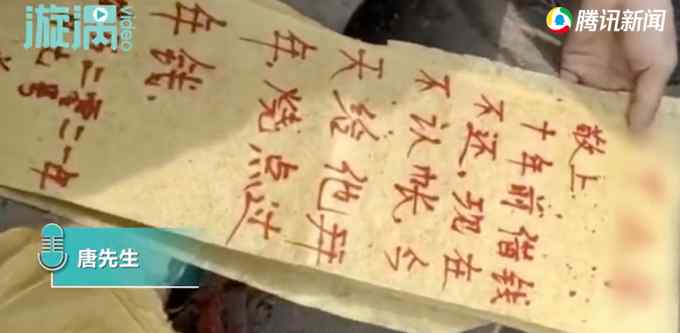 漩涡video
腾讯新闻
敬上
十年前借钱
不还，现在
不认帐今
天给他拜
年，烧点过
年錢.
二零二一年
七号
唐先生